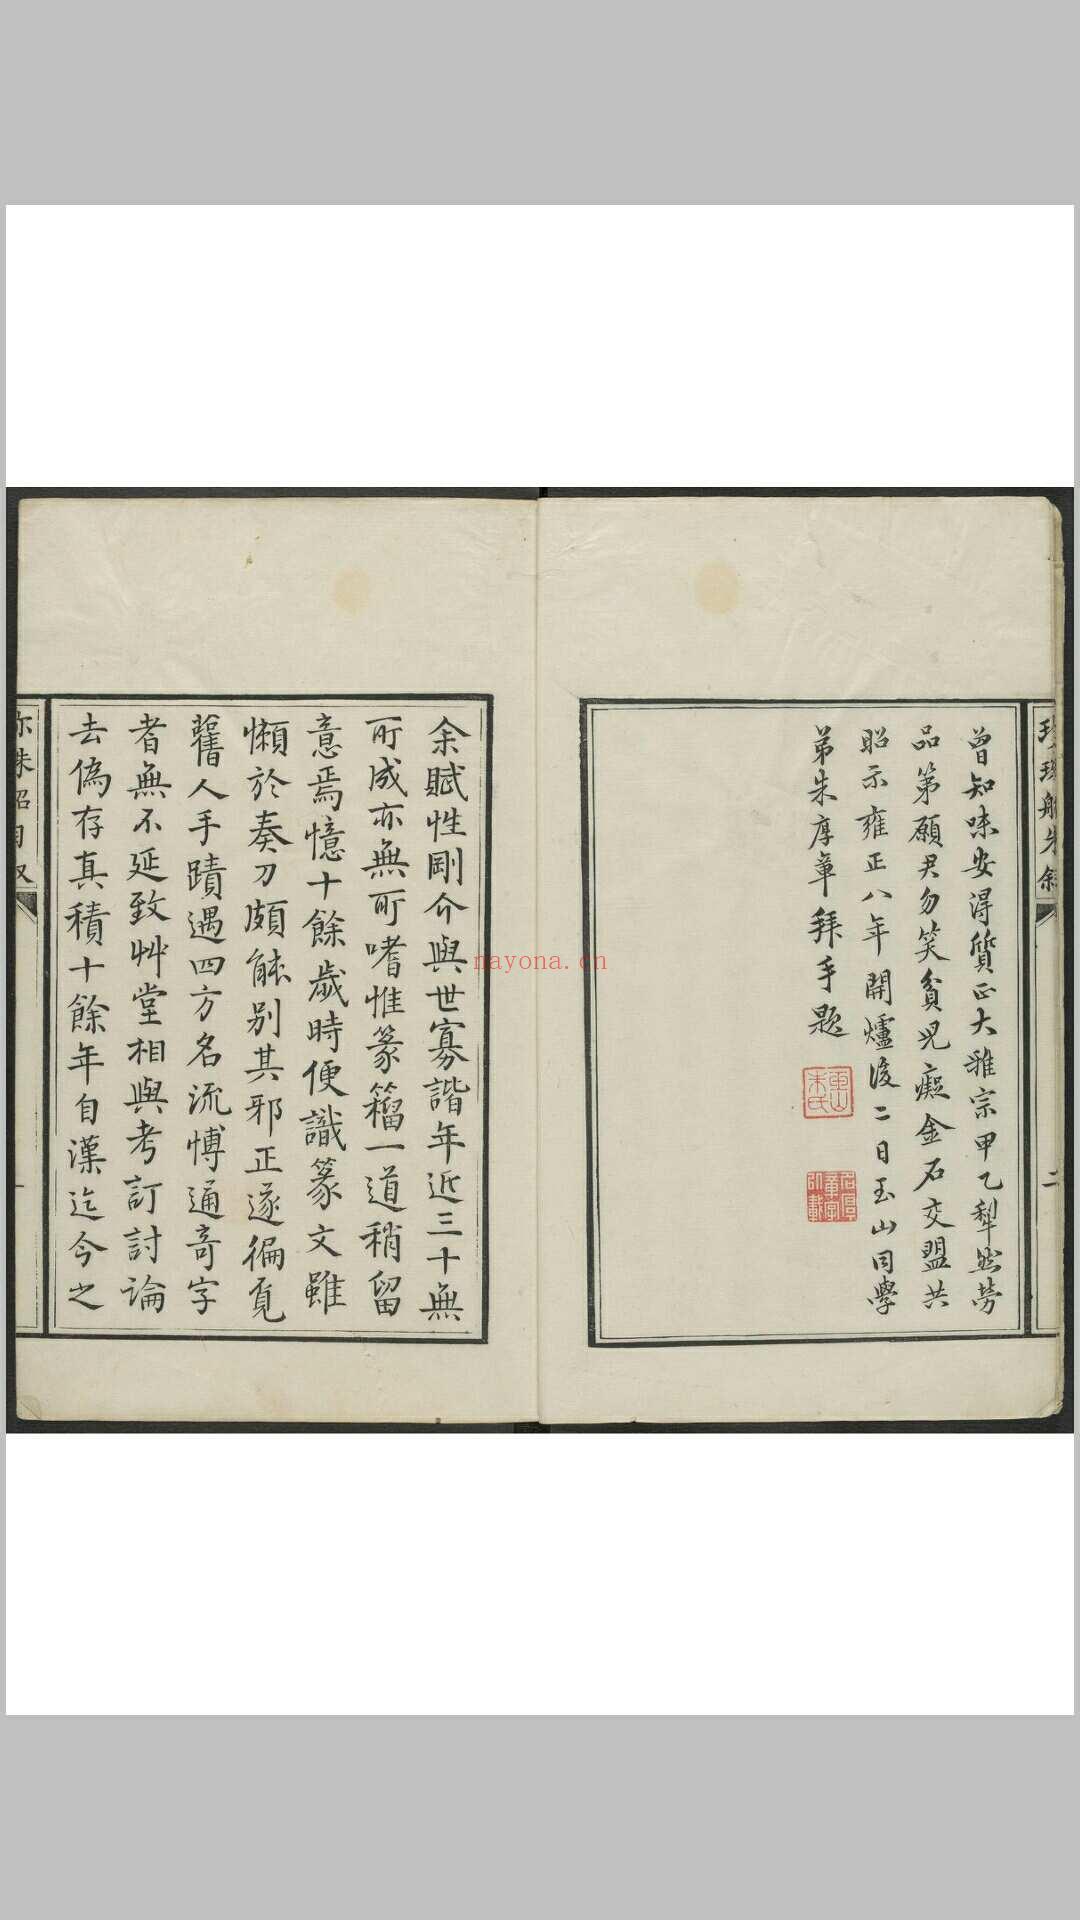 曾知味安得質正大雅宗甲乙犁然勞
品第願君勿笑貧兒癡金石交盟共
昭示雍正八年開爐後二日玉山同學
弟朱厚章拜手題
二
余賦性剛介與世寡諧年近三十無
所成亦無所嗜惟篆籀一道稍留
意焉憶十餘歲時便識篆文雖
懶於奏刀頗能別其邪正遂徧覓
舊人手蹟遇四方名流博通奇字
者無不延致艸堂相與考訂討論
去偽存真積十餘年自漢迄今之
nayona.cn